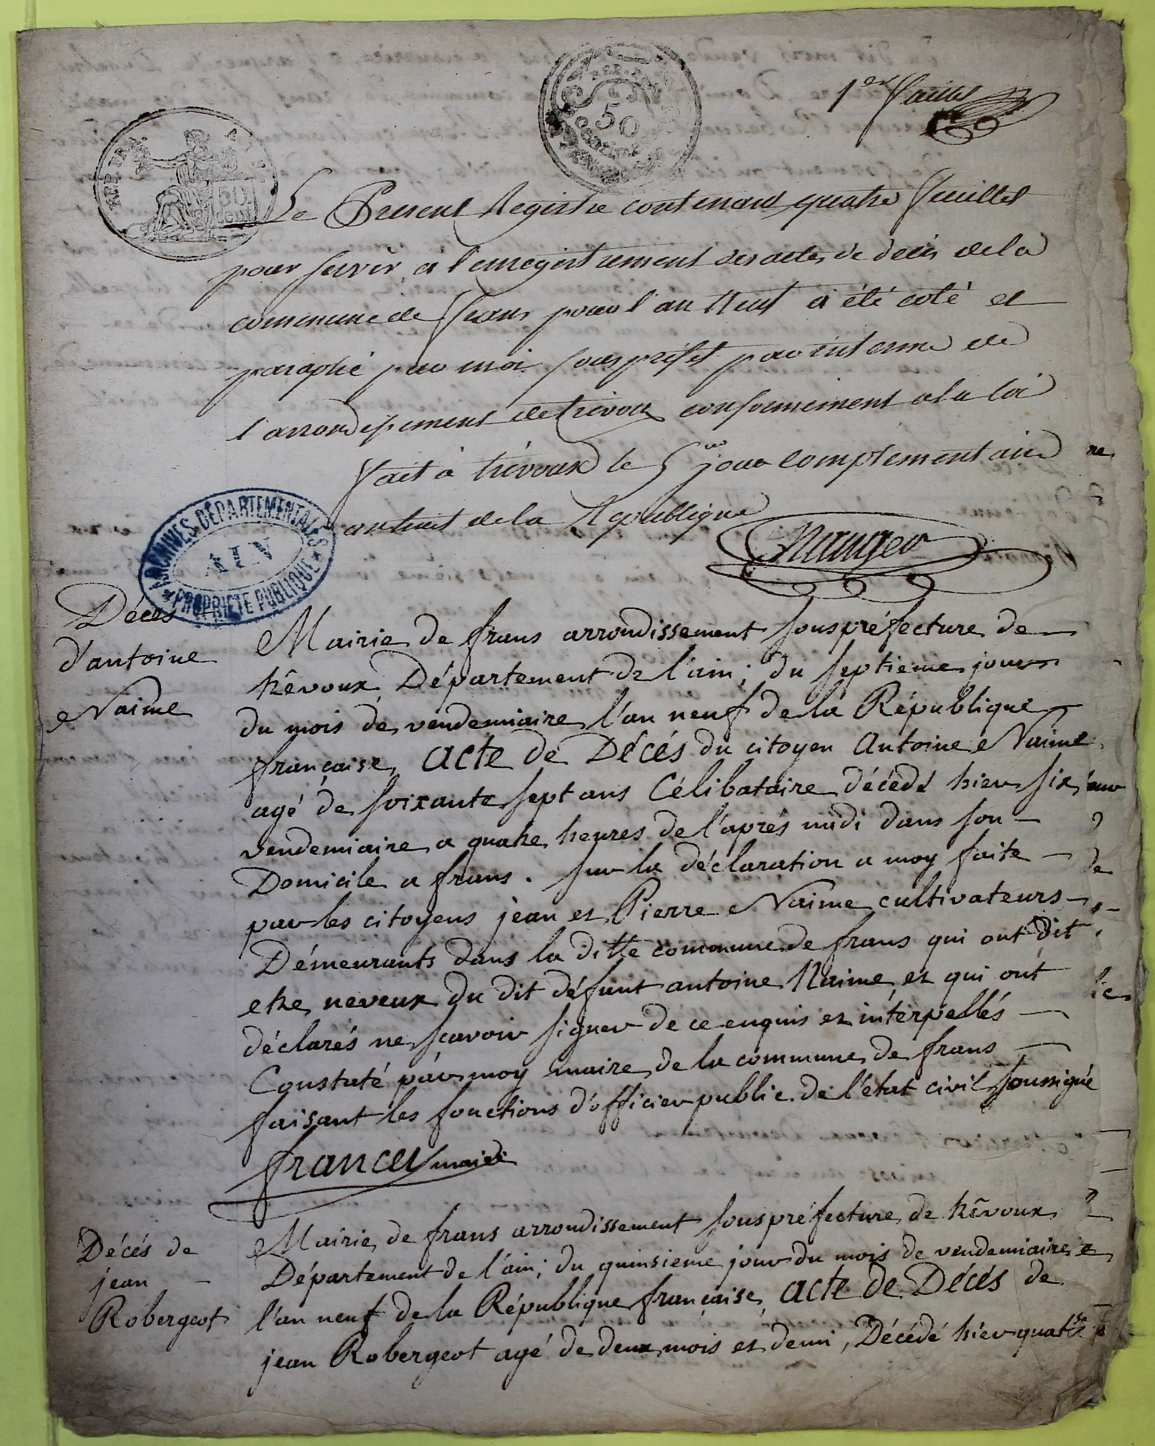 1er feuillet
50
Le Present Registre contenant quatre feuilles
pour servir a l'enregistrement des actes de décès de la
commune de frans pour l'an Neuf a été coté et
paraphé par moi sous préfet par interim de
l'arrondissement de trévoux conformement a la loi
fait à trévoux le 5me jour complementaire
an huit de la République
ARCHIVES DÉPARTEMENTALES
AIN
PROPRIÉTÉ PUBLIQUE
Décès
d'antoine
Naime
Mairie de frans arrondissement souspréfecture de
trêvoux Département de l'ain; du septieme jour
du mois de vendemiaire l'an neuf de la République
française, acte de Décés du citoyen Antoine Naime
agé de soixante sept ans Célibataire décédé hier six
vendemiaire a quatre heures de l'aprés midi dans son
Domicile a frans. sur la déclaration a moy faite
par les citoyens jean et Pierre Naime cultivateurs
Démeurants dans la ditte commune de frans qui ont dit
etre neveux du dit défunt antoine Naime et qui ont
déclarés ne scavoir signer de ce enquis et intérpellés
Constaté par moy maire de la commune de frans
faisant les fonctions d'officier public de l'état civil soussigné
france maire
Décés de
jean
Robergeot
Mairie de frans arrondissement souspréfecture de trêvoux
Département de l'ain; du quinsieme jour du mois de vendemiaire
l'an neuf de la République française, acte de Décés de
jean Robergeot agé de deux mois et demi, Décédé hier quatre